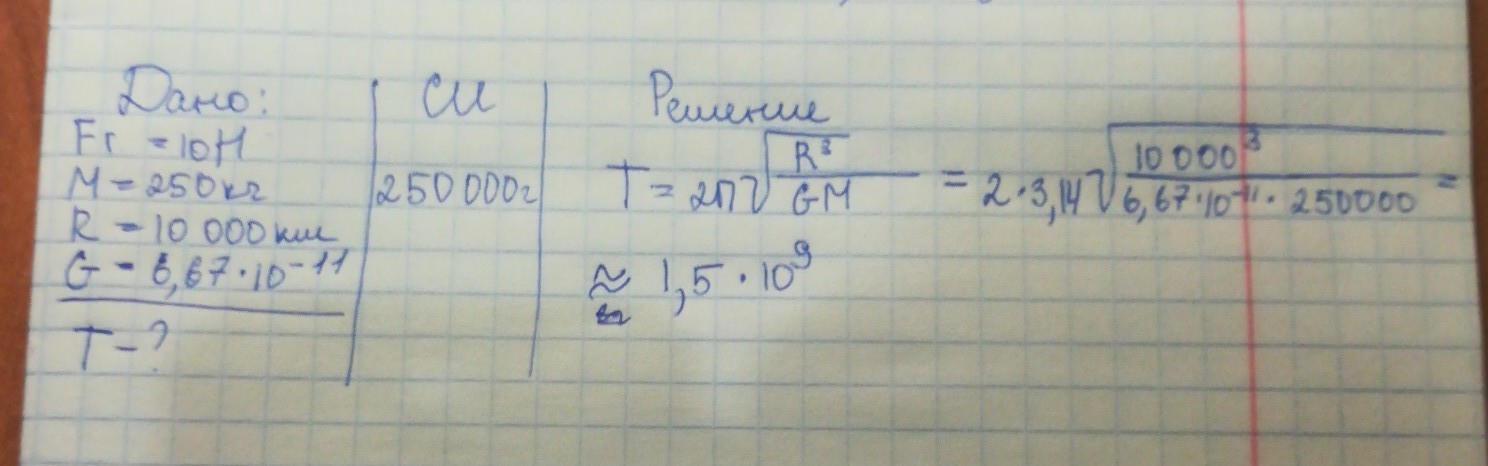 Дано:
Fг = 10Н
М = 250кг
R = 10 000км
G = 6,67·10⁻¹¹
Т - ?
СИ
250000г
Решение
T = 2π√(R³/GM) = 2·3,14√(10 000³/6,67·10⁻¹¹·250000) =
≈ 1,5·10⁹